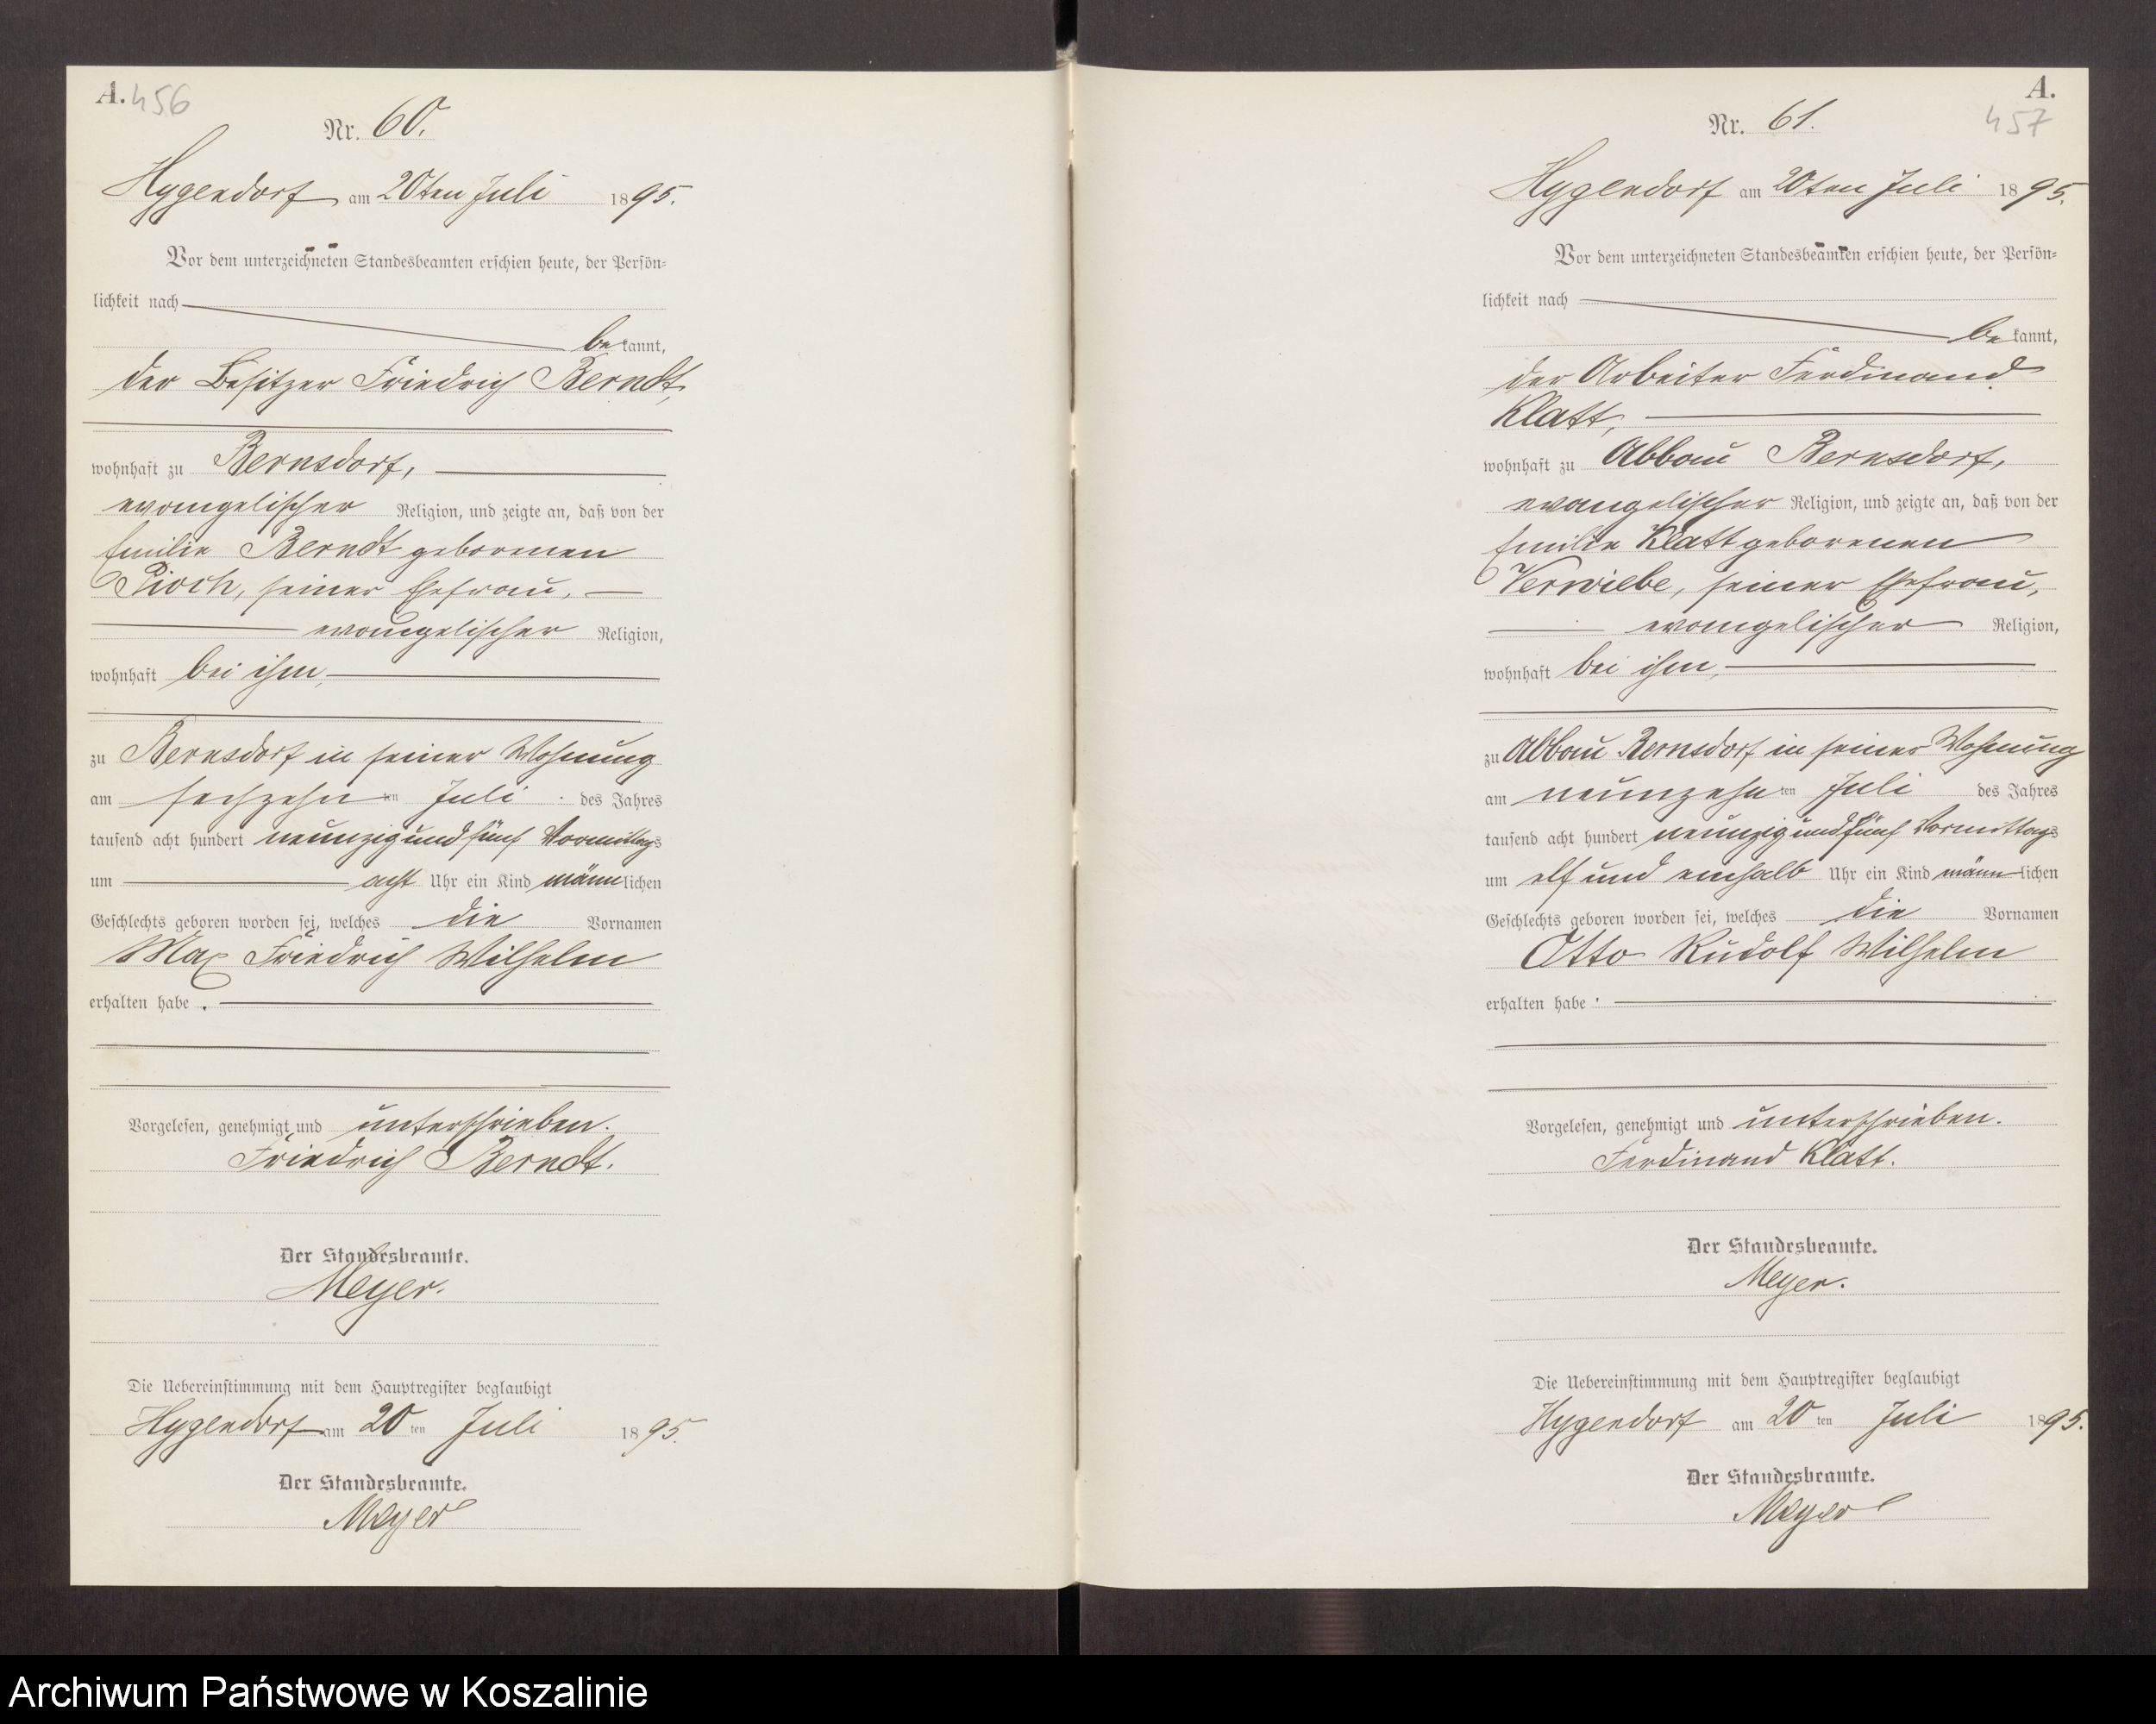 A. 456
Nr. 60.
Hygendorf am 20ten Juli 1895.
Vor dem unterzeichneten Standesbeamten erschien heute, der Persön-
lichkeit nach
bekannt,
der Besitzer Friedrich Berndt,
wohnhaft zu Bernsdorf,
evangelischer Religion, und zeigte an, daß von der
Emilie Berndt geborenen
Pioch, seiner Ehefrau,
evangelischer Religion,
wohnhaft bei ihm,
zu Bernsdorf in seiner Wohnung
am sechzehnten Juli des Jahres
tausend acht hundert neunzig und fünf Vormittags
um acht Uhr ein Kind männlichen
Geschlechts geboren worden sei, welches die Vornamen
Max Friedrich Wilhelm
erhalten habe.
Vorgelesen, genehmigt und unterschrieben.
Friedrich Berndt.
Der Standesbeamte.
Meyer.
Die Uebereinstimmung mit dem Hauptregister beglaubigt
Hygendorf am 20ten Juli 1895.
Der Standesbeamte.
Meyer
A.
457
Nr. 61.
Hygendorf am 20ten Juli 1895.
Vor dem unterzeichneten Standesbeamten erschien heute, der Persön-
lichkeit nach
bekannt,
der Arbeiter Ferdinand
Klatt,
wohnhaft zu Abbau Bernsdorf,
evangelischer Religion, und zeigte an, daß von der
Emilie Klatt geborenen
Verwiebe, seiner Ehefrau,
evangelischer Religion,
wohnhaft bei ihm,
zu Abbau Bernsdorf in seiner Wohnung
am neunzehnten Juli des Jahres
tausend acht hundert neunzig und fünf Vormittags
um elf und einhalb Uhr ein Kind männlichen
Geschlechts geboren worden sei, welches die Vornamen
Otto Rudolf Wilhelm
erhalten habe.
Vorgelesen, genehmigt und unterschrieben.
Ferdinand Klatt.
Der Standesbeamte.
Meyer.
Die Uebereinstimmung mit dem Hauptregister beglaubigt
Hygendorf am 20ten Juli 1895.
Der Standesbeamte.
Meyer
Archiwum Państwowe w Koszalinie